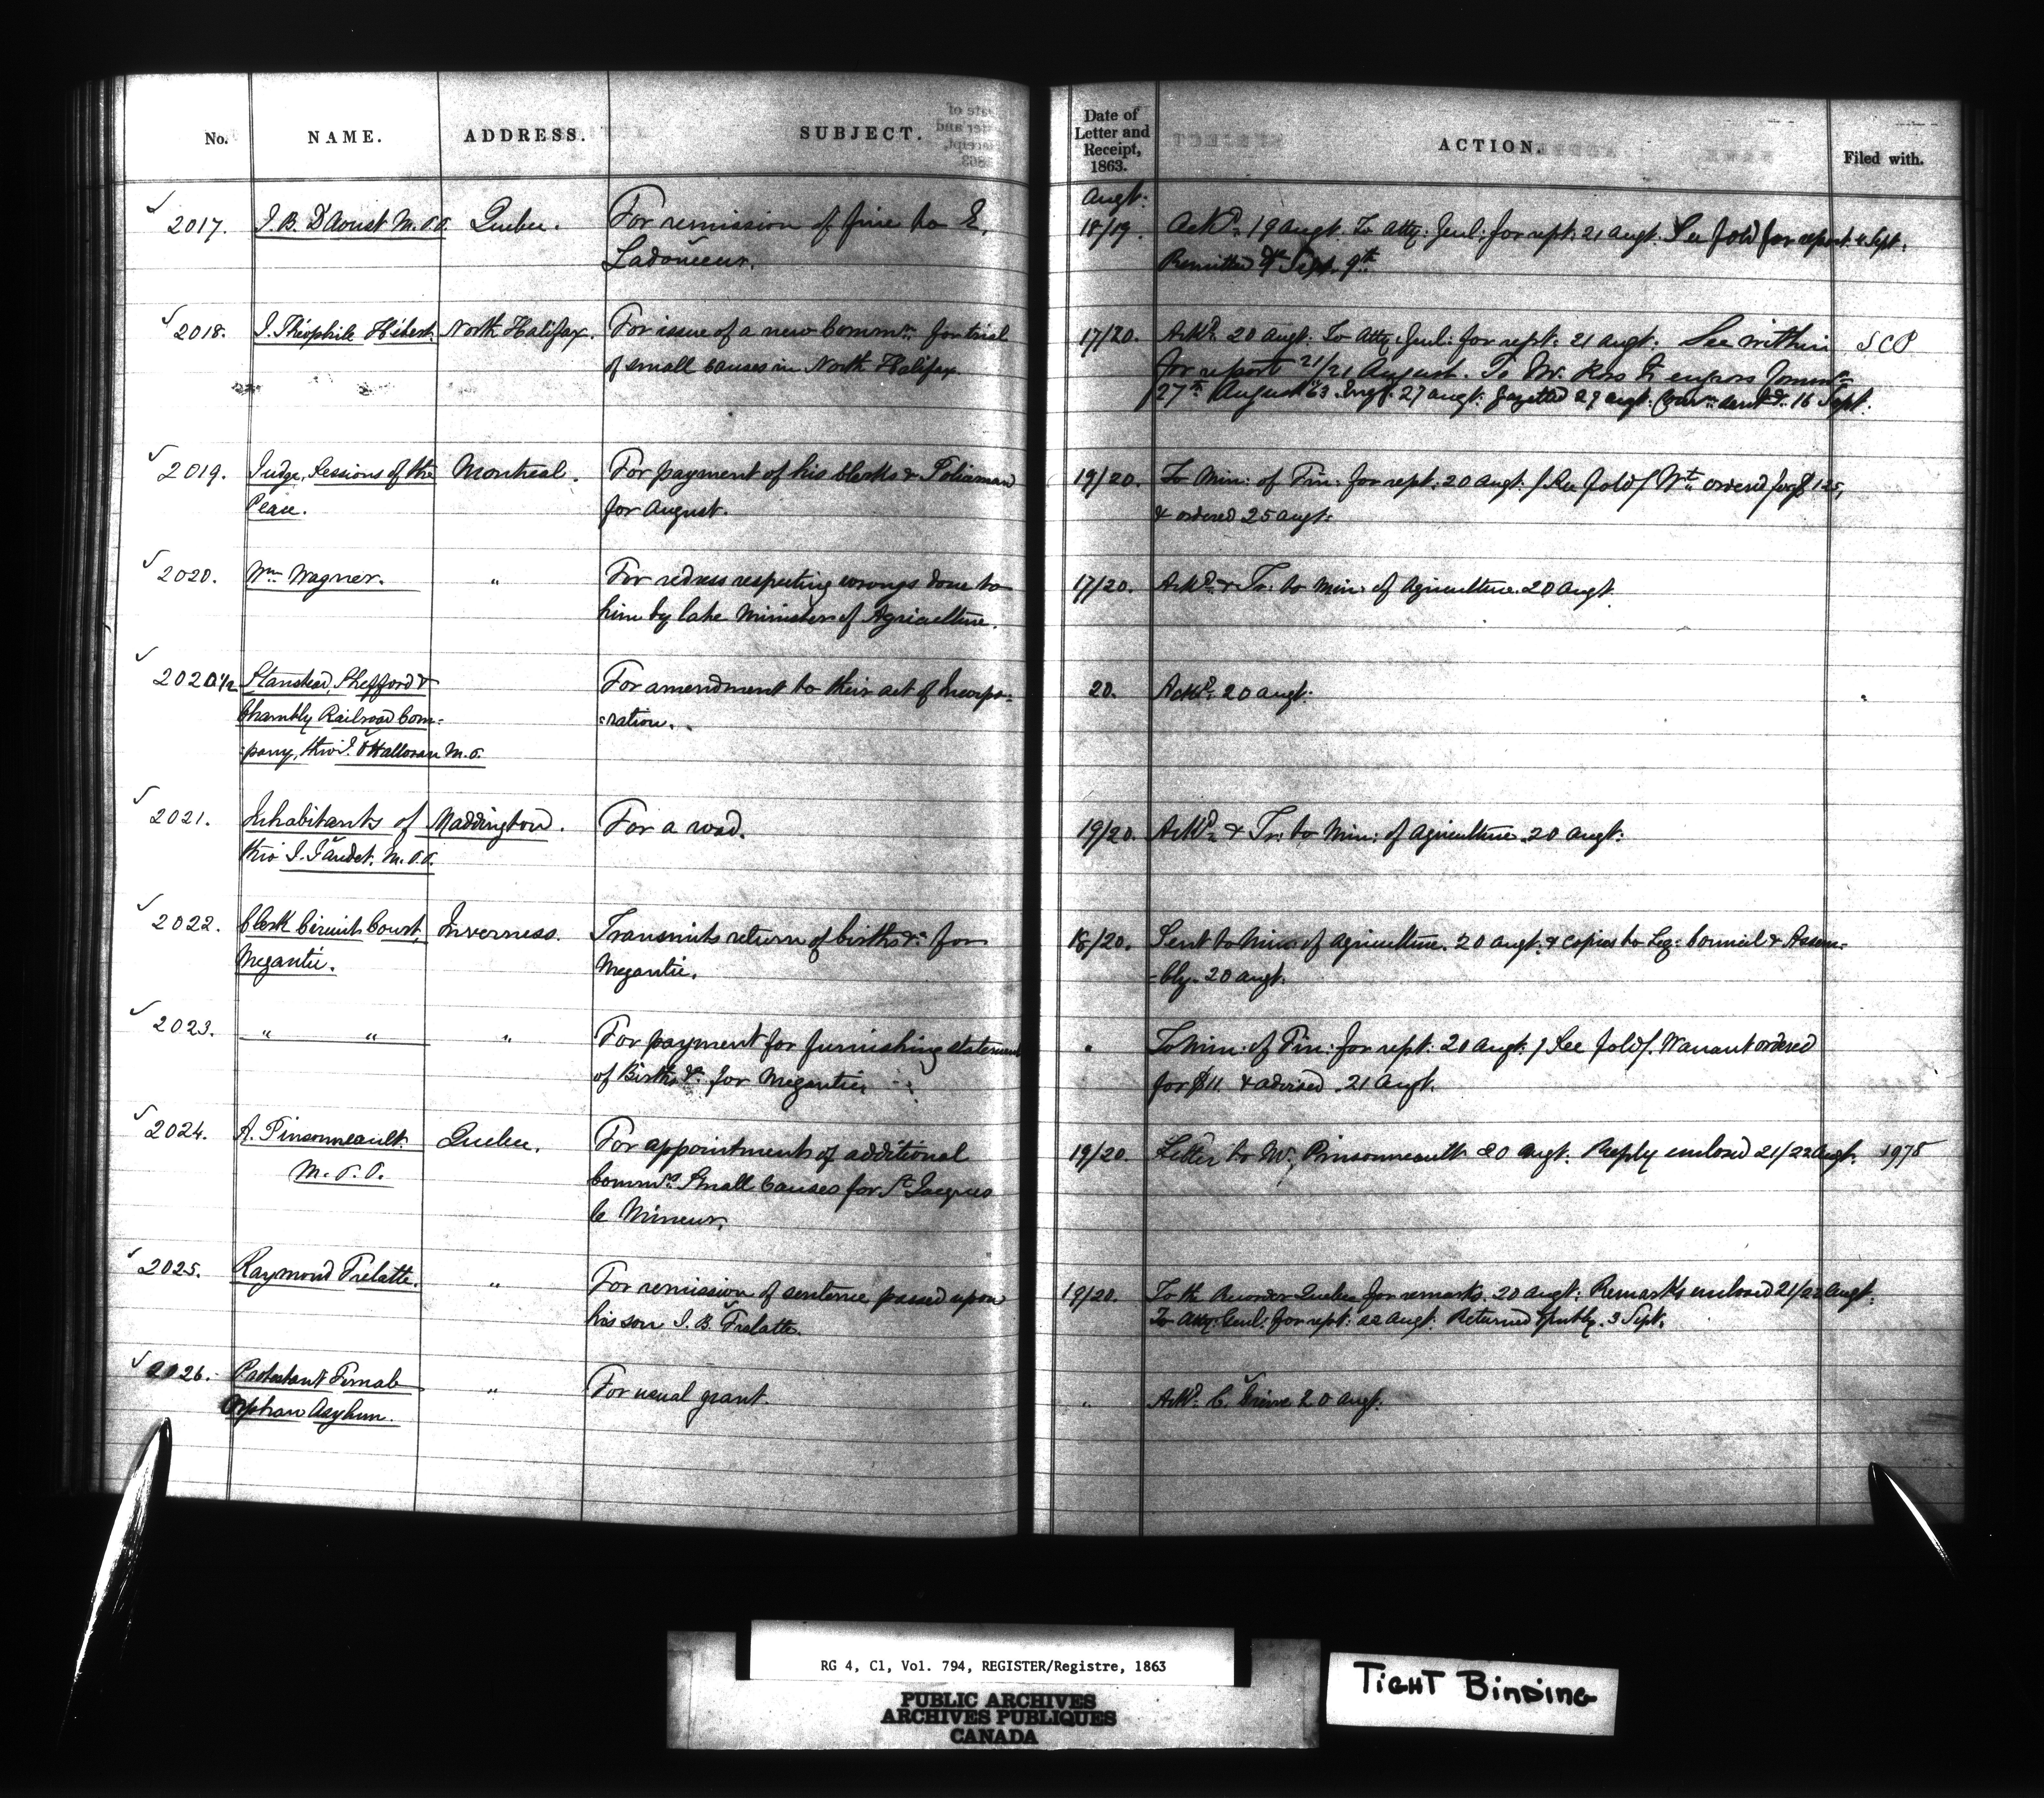 No. NAME. ADDRESS. SUBJECT. Date of Letter and Receipt, 1863. ACTION. Filed with.
Augt:
2017. J. B. D'Aoust M.P.P. Quebec. For remission of fine to E. 18/19. Ackd. 19 Augt. To Atty: Genl: for rept: 21 Augt. See fold for report 4 Sept.
Ladouceur. Remitted Sept. 9th
2018. J. Théophile Hébert. North Halifax. For issue of a new Commn. for trial 17/20. Ackd. 20 Augt. To Atty: Genl: for rept: 21 Augt: See within SCP
of small causes in North Halifax for report 21/21 August. To Mr. Kos to engross Commn.
27th August 63. Engd. 27 Augt: gazetted 29 Augt. Commn. sent 16 Sept.
2019. Judge, Sessions of the Montreal. For payment of his Clerks & Policeman 19/20. To Min: of Fin: for rept: 20 Augt. / See fold / Wt. ordered for $125,
Peace. for August. & ordered 25 Augt:
2020. Wm Wagner. " For redress respecting wrongs done to 17/20. Ackd. & Tr: to Min: of Agriculture 20 Augt.
him by late Minister of Agriculture.
2020 1/2 Stanstead, Shefford & For amendment to their act of Incorpo- 20. Ackd. 20 Augt:
Chambly Railroad Com- =ration.
=pany, thro' J. O'Halloran M.P.
2021. Inhabitants of Maddington. For a road. 19/20. Ackd. & Tr: to Min: of Agriculture 20 Augt:
thro J. Gaudet. M.P.P.
2022. Clerk Circuit Court, Inverness. Transmits return of births &c for 18/20. Sent to Min: of Agriculture. 20 Augt: & copies to Leg: Council & Assem-
Megantic. Megantic. =bly. 20 Augt.
2023. " " " For payment for furnishing statement " To Min: of Fin: for rept: 20 Augt. / See fold /. Warrant ordered
of Births &c for Megantic for $11 & advised 21 Augt.
2024. A. Pinsonneault Quebec. For appointments of additional 19/20 Letter to Mr. Pinsonneault 20 Augt. Reply enclosed 21/22 Augt. 1975
M.P.P. Commrs. Small Causes for St. Jacques
le Mineur.
2025. Raymond Frelatte. " For remission of sentence passed upon 19/20. To the Recorder Quebec for remarks. 20 Augt: Remarks enclosed 21/22 Augt:
his son J. B. Frelatte. To Atty: Genl: for rept: 22 Augt. Returned 3 Sept.
2026. Protestant Female " For usual grant. " Ackd. 20 Augt.
Orphan Asylum.
RG 4, C1, Vol. 794, REGISTER/Registre, 1863
PUBLIC ARCHIVES
ARCHIVES PUBLIQUES
CANADA
TIGHT BINDING